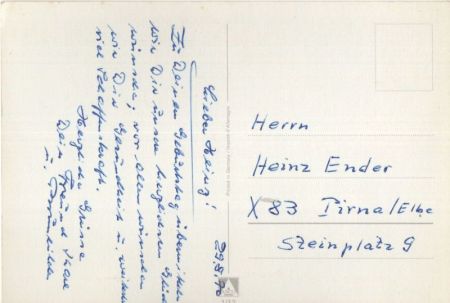 29.8.70
Lieber Heinz!
Zu Deinem Geburtstag übermitteln
wir Dir unsere herzlichsten Glück
wünsche, vor allem wünschen
wir Dir Gesundheit u. weiterhin
viel Schaffenskraft.
Herzliche Grüsse
Dein Freund
u.
Herrn
Heinz Ender
X 83 Pirna/Elbe
Steinplatz 9